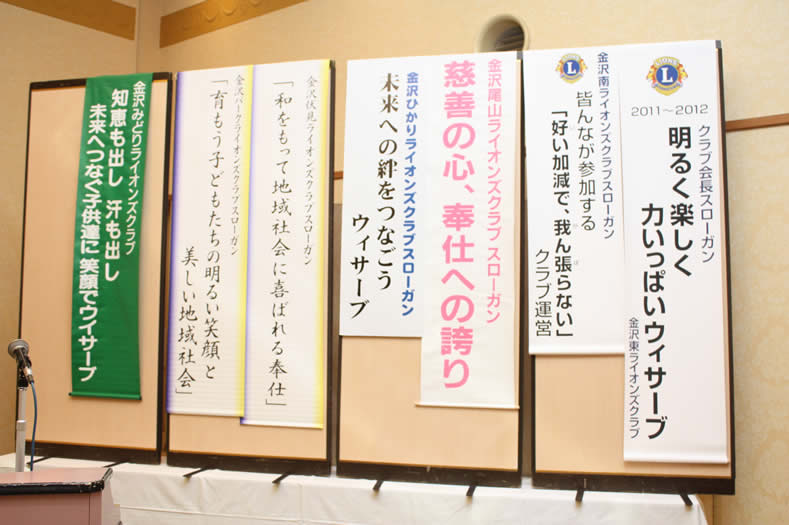 LIONS
L
INTERNATIONAL
2011〜2012
クラブ会長スローガン
明るく楽しく
力いっぱいウィサーブ
金沢東ライオンズクラブ
L
金沢南ライオンズクラブスローガン
皆んなが参加する
「好い加減で、我ん張らない」
クラブ運営
金沢尾山ライオンズクラブ スローガン
慈善の心、奉仕への誇り
金沢ひかりライオンズクラブスローガン
未来への絆をつなごう
ウィサーブ
金沢伏見ライオンズクラブスローガン
「和をもって地域社会に喜ばれる奉仕」
金沢パークライオンズクラブスローガン
「育もう子どもたちの明るい笑顔と
美しい地域社会」
金沢みどりライオンズクラブ
知恵も出し 汗も出し
未来へつなぐ子供達に 笑顔でウイサーブ